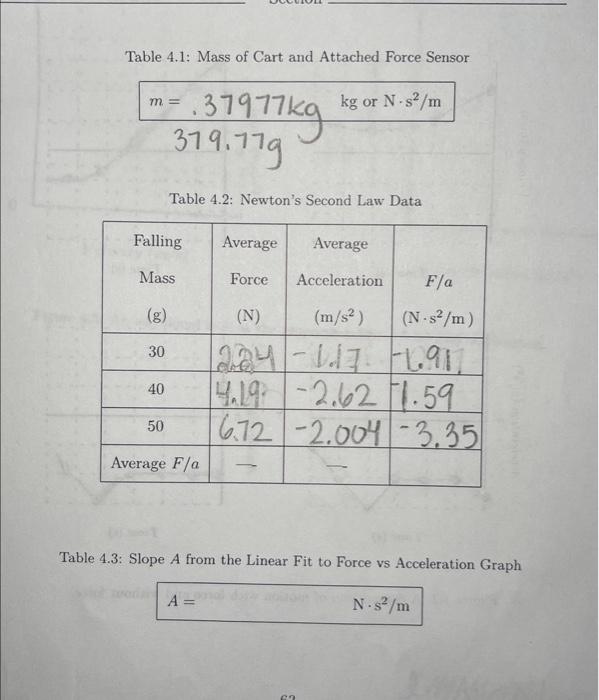 Table 4.1: Mass of Cart and Attached Force Sensor
m = .37977kg kg or N · s²/m
379.77g
Table 4.2: Newton's Second Law Data
Falling Average Average
Mass Force Acceleration F/a
(g) (N) (m/s²) (N · s²/m)
30 2.24 -1.17 -1.91
40 4.19 -2.62 -1.59
50 6.72 -2.004 -3.35
Average F/a — —
Table 4.3: Slope A from the Linear Fit to Force vs Acceleration Graph
A = N · s²/m